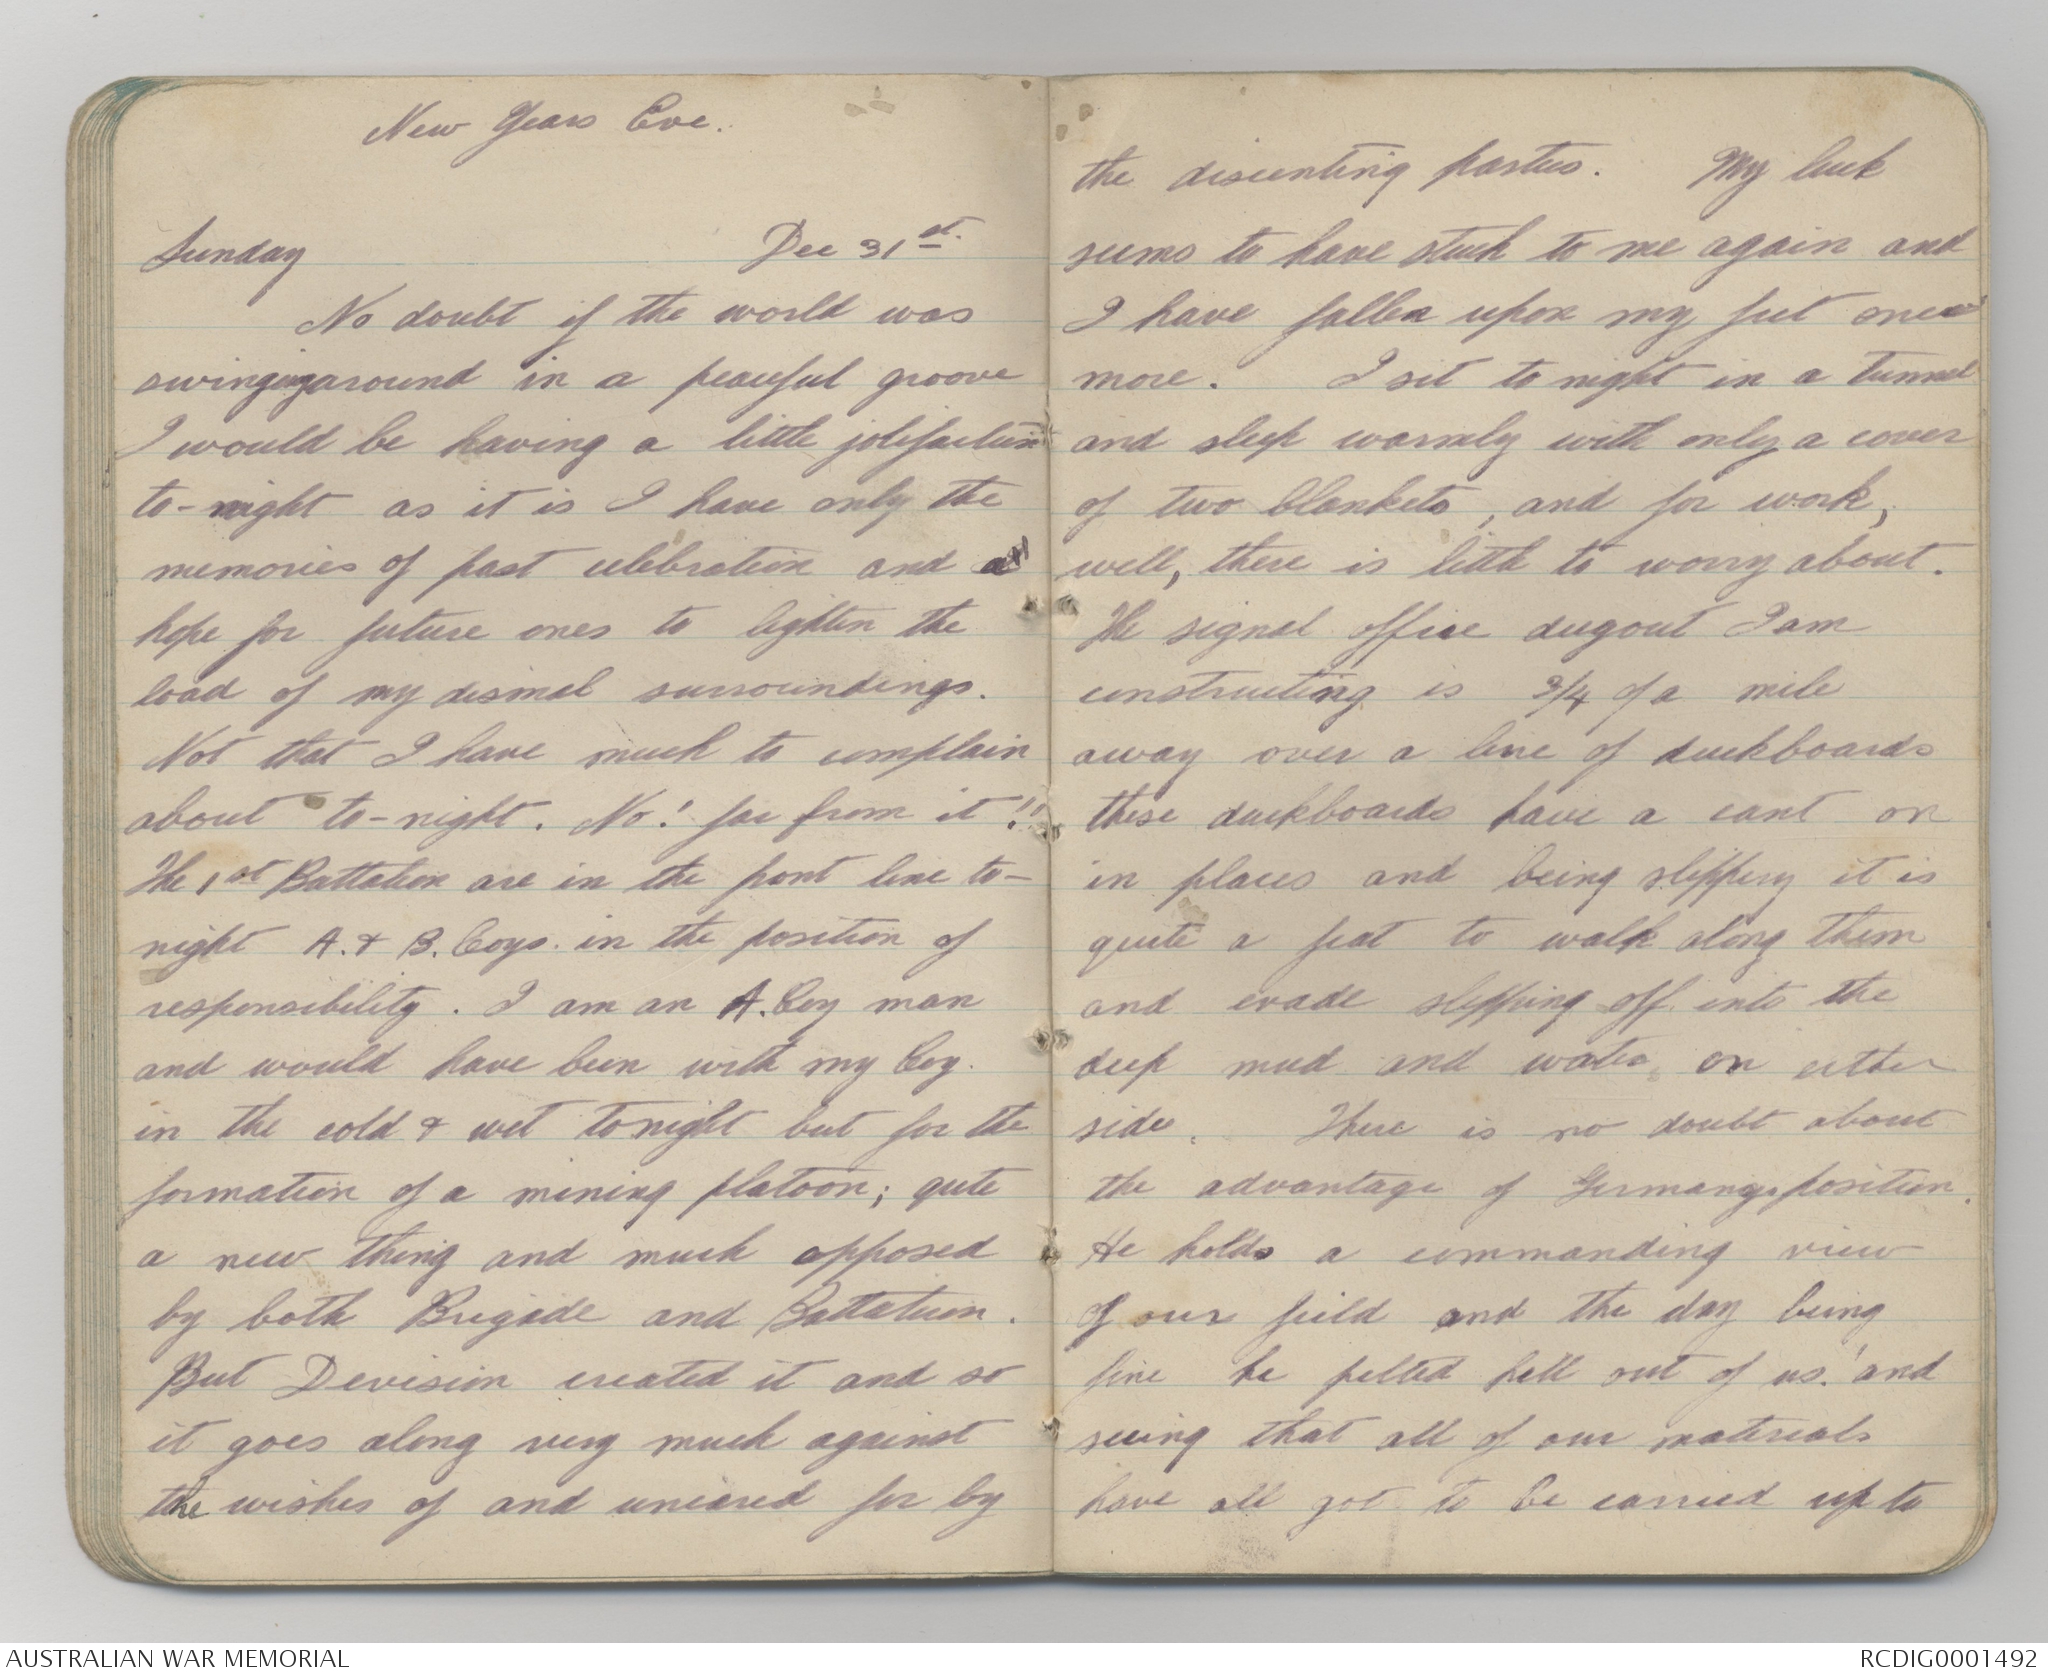 New Years Eve.
Sunday Dec 31st.
No doubt if the world was
swinging around in a peaceful groove
I would be having a little jolifaction
to-night as it is I have only the
memories of past celebration and
hope for future ones to lighten the
load of my dismal surroundings.
Not that I have much to complain
about to-night. No! far from it!!
The 1st Battalion are in the front line to-
night A. & B. Coys. in the position of
responsibility. I am an A. Coy man
and would have been with my Coy.
in the cold & wet tonight but for the
formation of a mining platoon; quite
a new thing and much opposed
by both Brigade and Battalion.
But Devision created it and so
it goes along very much against
the wishes of and uncared for by
the discenting parties. My luck
seems to have stuck to me again and
I have fallen upon my feet once
more. I sit to night in a tunnel
and sleep warmly with only a cover
of two blankets, and for work,
well, there is little to worry about.
The signal office dugout I am
constructing is 3/4 of a mile
away over a line of duckboards
these duckboards have a cant on
in places and being slippery it is
quite a feat to walk along them
and evade slipping off into the
deep mud and water on either
side. There is no doubt about
the advantage of Germanys position.
He holds a commanding view
of our field and the day being
fine he pelted hell out of us! and
seeing that all of our materials
have all got to be carried up to
AUSTRALIAN WAR MEMORIAL RCDIG0001492